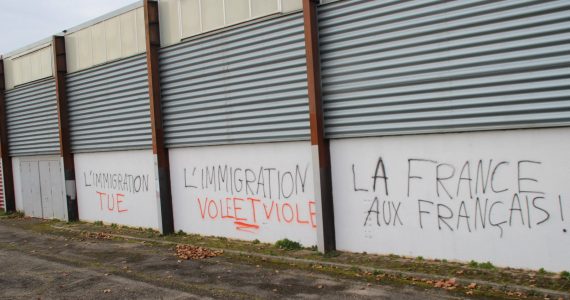 L'IMMIGRATION
TUE
L'IMMIGRATION
VOLE ET VIOLE
LA FRANCE
AUX FRANÇAIS!